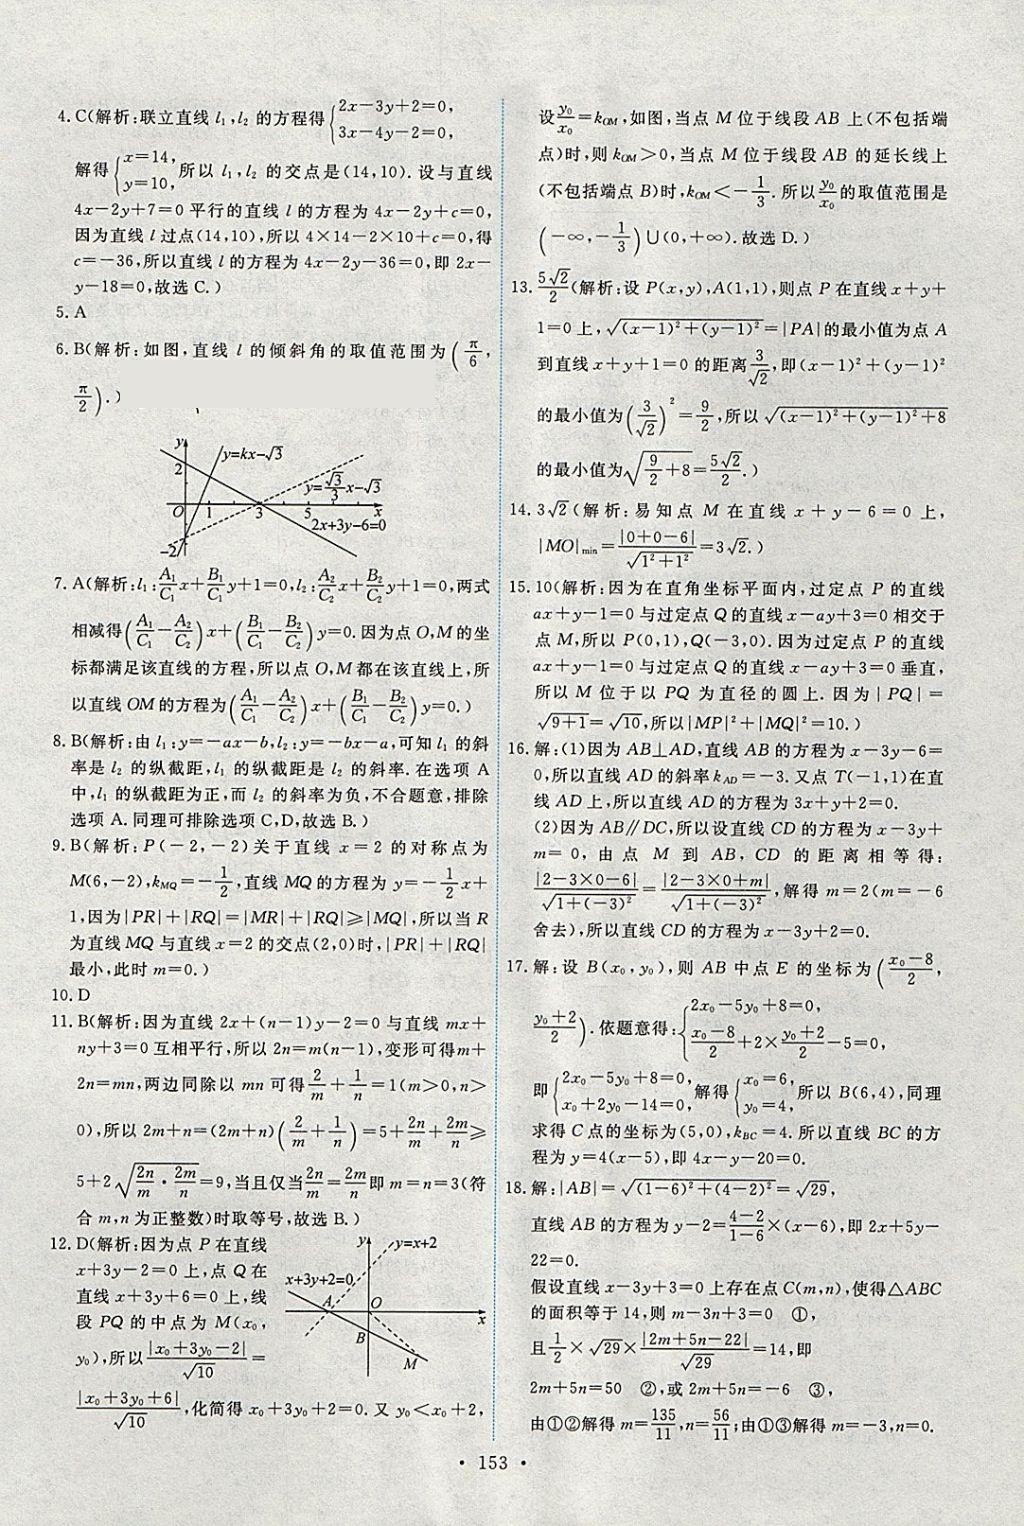 4. C(解析:联立直线 l₁,l₂ 的方程得{2x−3y+2=0,
3x−4y−2=0,
解得{x=14, y=10,所以 l₁,l₂ 的交点是(14,10).设与直线
4x−2y+7=0 平行的直线 l 的方程为 4x−2y+c=0,
因为直线 l 过点(14,10),所以 4×14−2×10+c=0,得
c=−36,所以直线 l 的方程为 4x−2y−36=0,即 2x−
y−18=0,故选 C.)
5. A
6. B(解析:如图,直线 l 的倾斜角的取值范围为(π/6,
π/2).)
y
2
y=kx−√3
y=√3/3x−√3
O 1 3 5 x
2x+3y−6=0
−2
7. A(解析:l₁:A₁/C₁x+B₁/C₁y+1=0,l₂:A₂/C₂x+B₂/C₂y+1=0,两式
相减得(A₁/C₁−A₂/C₂)x+(B₁/C₁−B₂/C₂)y=0.因为点 O,M的坐
标都满足该直线的方程,所以点 O,M 都在该直线上,所
以直线 OM的方程为(A₁/C₁−A₂/C₂)x+(B₁/C₁−B₂/C₂)y=0.)
8. B(解析:由 l₁:y=−ax−b,l₂:y=−bx−a,可知 l₁ 的斜
率是 l₂ 的纵截距,l₁ 的纵截距是 l₂ 的斜率.在选项 A
中,l₁ 的纵截距为正,而 l₂ 的斜率为负,不合题意,排除
选项 A.同理可排除选项 C,D,故选 B.)
9. B(解析:P(−2,−2)关于直线 x=2 的对称点为
M(6,−2),k_MQ=−1/2,直线 MQ 的方程为 y=−1/2x+
1,因为|PR|+|RQ|=|MR|+|RQ|≥|MQ|,所以当 R
为直线 MQ 与直线 x=2 的交点(2,0)时,|PR|+|RQ|
最小,此时 m=0.)
10. D
11. B(解析:因为直线 2x+(n−1)y−2=0 与直线 mx+
ny+3=0 互相平行,所以 2n=m(n−1),变形可得m+
2n=mn,两边同除以 mn 可得2/m+1/n=1(m>0,n>
0),所以 2m+n=(2m+n)(2/m+1/n)=5+2n/m+2m/n≥
5+2√(2n/m·2m/n)=9,当且仅当2n/m=2m/n即 m=n=3(符
合 m,n 为正整数)时取等号,故选 B.)
12. D(解析:因为点 P 在直线
x+3y−2=0 上,点 Q 在
直线 x+3y+6=0 上,线
段 PQ 的中点为 M(x₀,
y₀),所以|x₀+3y₀−2|/√10=
|x₀+3y₀+6|/√10,化简得 x₀+3y₀+2=0.又 y₀<x₀+2,
y
y=x+2
x+3y+2=0
A O x
B
M
设y₀/x₀=k_OM,如图,当点 M 位于线段 AB 上(不包括端
点)时,则 k_OM>0,当点 M 位于线段 AB 的延长线上
(不包括端点 B)时,k_OM<−1/3.所以y₀/x₀的取值范围是
(−∞,−1/3)∪(0,+∞).故选 D.)
13. 5√2/2(解析:设 P(x,y),A(1,1),则点 P 在直线 x+y+
1=0 上,√((x−1)²+(y−1)²)=|PA|的最小值为点 A
到直线 x+y+1=0 的距离3/√2,即(x−1)²+(y−1)²
的最小值为(3/√2)²=9/2,所以√((x−1)²+(y−1)²+8)
的最小值为√(9/2+8)=5√2/2.)
14. 3√2(解析:易知点 M 在直线 x+y−6=0 上,
|MO|min=|0+0−6|/√(1²+1²)=3√2.)
15. 10(解析:因为在直角坐标平面内,过定点 P 的直线
ax+y−1=0 与过定点 Q 的直线 x−ay+3=0 相交于
点 M,所以 P(0,1),Q(−3,0).因为过定点 P 的直线
ax+y−1=0 与过定点 Q 的直线 x−ay+3=0 垂直,
所以 M 位于以 PQ 为直径的圆上.因为|PQ|=
√(9+1)=√10,所以|MP|²+|MQ|²=10.)
16. 解:(1)因为 AB⊥AD,直线 AB 的方程为 x−3y−6=
0,所以直线 AD 的斜率 k_AD=−3.又点 T(−1,1)在直
线 AD 上,所以直线 AD 的方程为 3x+y+2=0.
(2)因为 AB∥DC,所以设直线 CD 的方程为 x−3y+
m=0,由点 M 到 AB,CD 的距离相等得:
|2−3×0−6|/√(1+(−3)²)=|2−3×0+m|/√(1+(−3)²),解得 m=2(m=−6
舍去),所以直线 CD 的方程为 x−3y+2=0.
17. 解:设 B(x₀,y₀),则 AB 中点 E 的坐标为((x₀−8)/2,
(y₀+2)/2).依题意得:{2x₀−5y₀+8=0, (x₀−8)/2+2×(y₀+2)/2−5=0,
即{2x₀−5y₀+8=0, x₀+2y₀−14=0,解得{x₀=6, y₀=4,所以 B(6,4),同理
求得 C 点的坐标为(5,0),k_BC=4.所以直线 BC 的方
程为 y=4(x−5),即 4x−y−20=0.
18. 解:|AB|=√((1−6)²+(4−2)²)=√29,
直线 AB 的方程为 y−2=(4−2)/(1−6)×(x−6),即 2x+5y−
22=0.
假设直线 x−3y+3=0 上存在点 C(m,n),使得△ABC
的面积等于 14,则 m−3n+3=0 ①,
且1/2×√29×|2m+5n−22|/√29=14,即
2m+5n=50 ②,或 2m+5n=−6 ③,
由①②解得 m=135/11,n=56/11;由①③解得 m=−3,n=0.
• 153 •